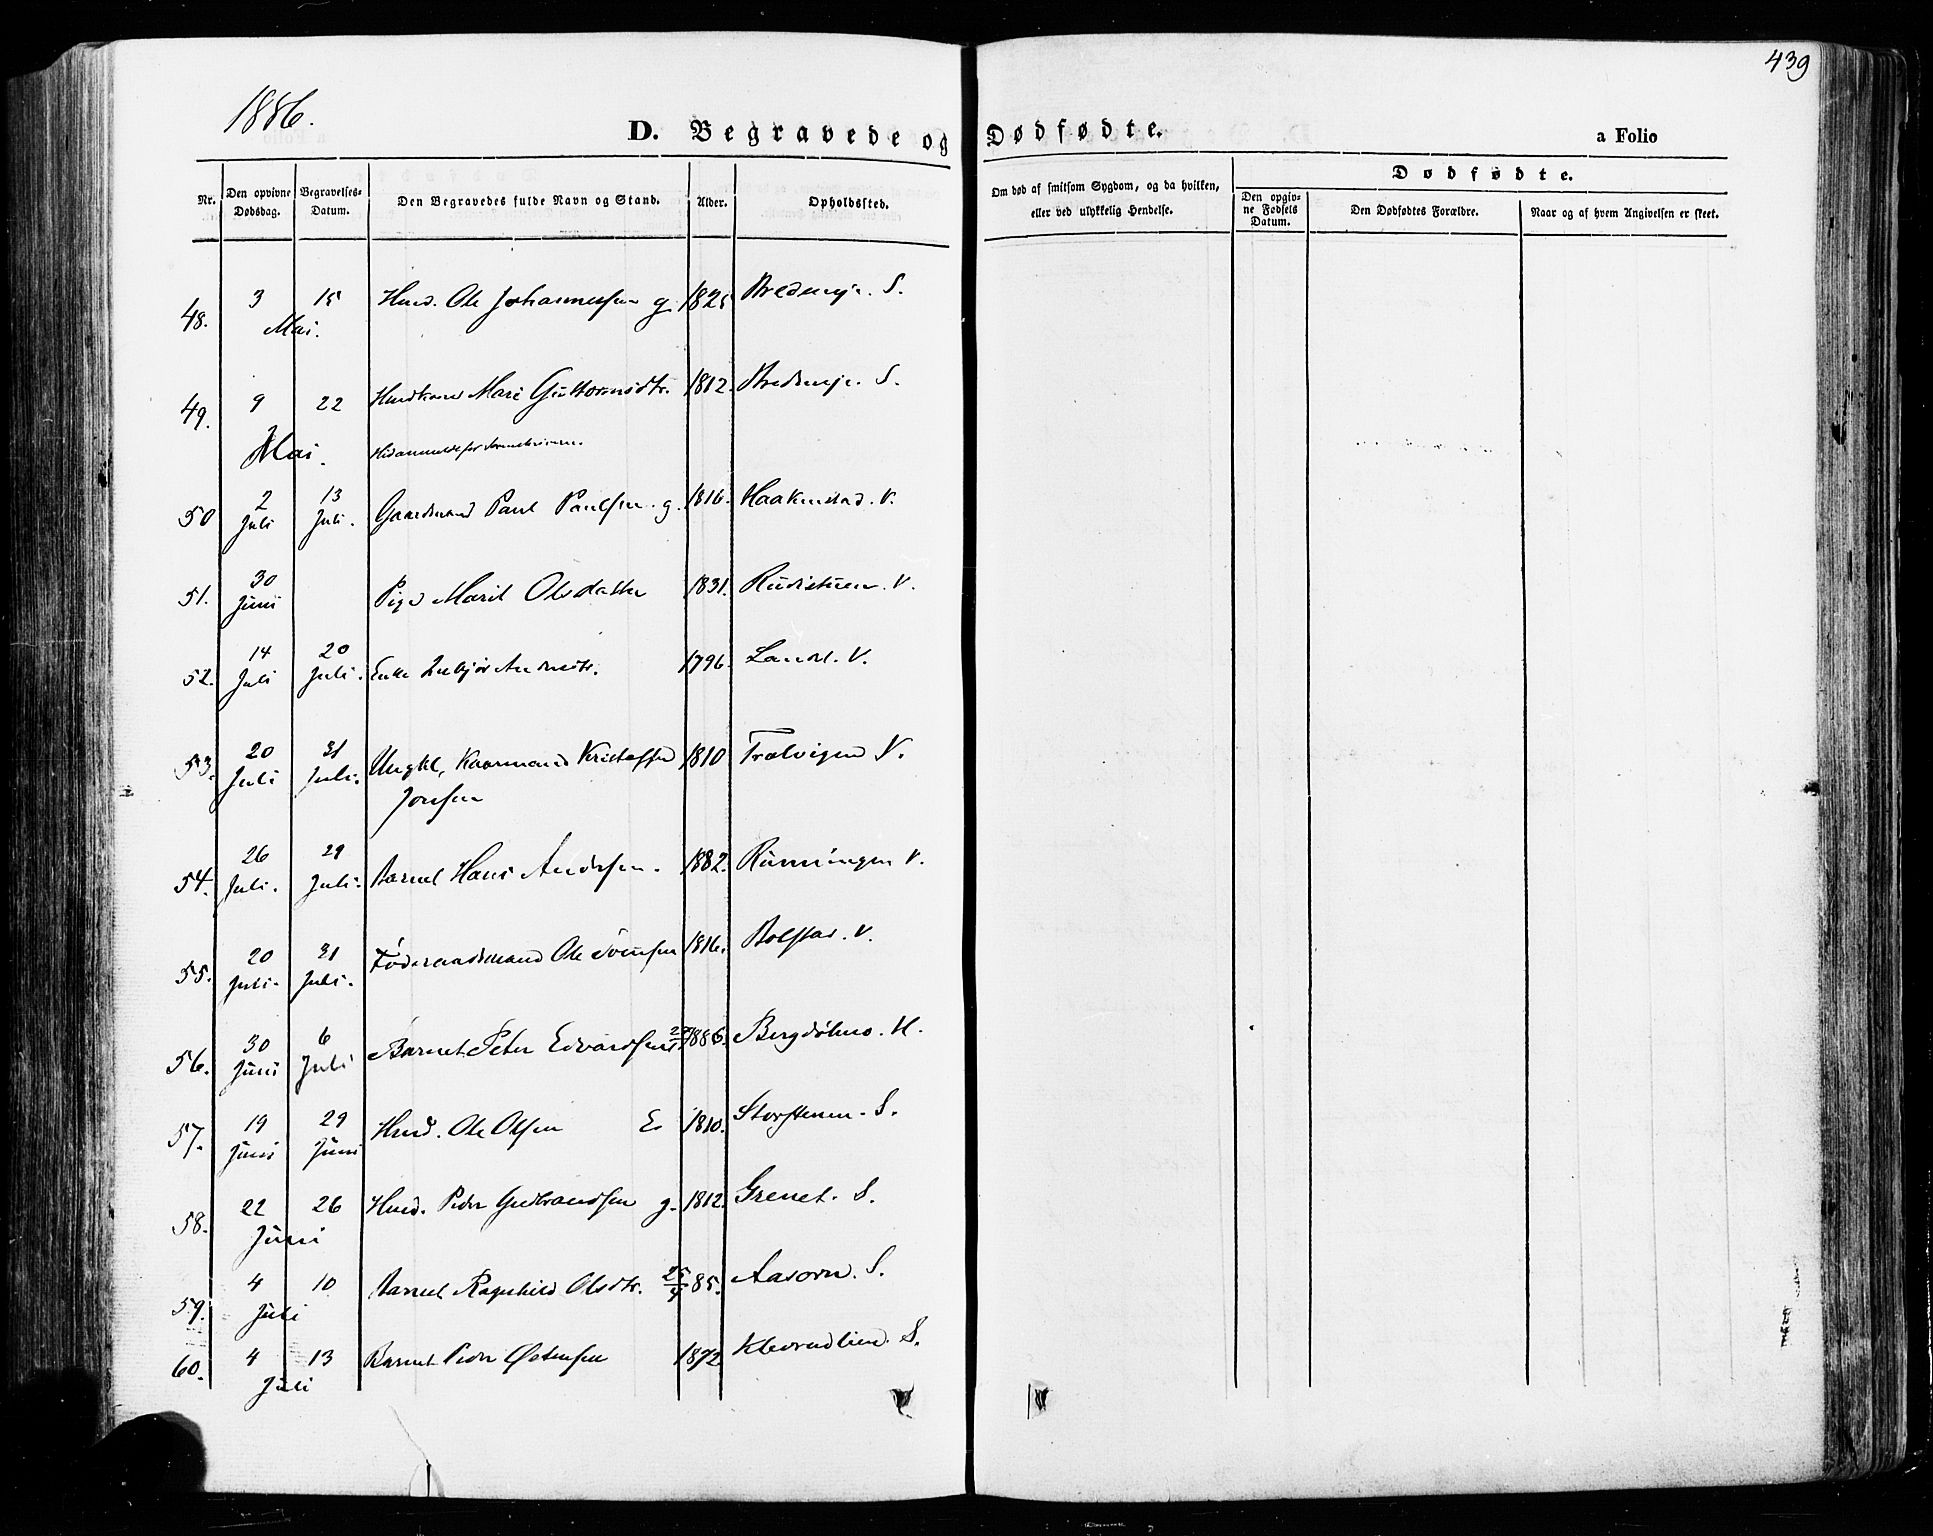 439
1886.
D. Begravede og Dødfødte.
a Folio
Nr. Den opgivne Dødsdag. Begravelses-Datum. Den Begravedes fulde Navn og Stand. Alder. Opholdssted. Om død af smitsom Sygdom, og da hvilken, eller ved ulykkelig Hendelse. Dødfødte. Den opgivne Fødsels Datum. Den Dødfødtes Forældre. Naar og af hvem Angivelsen er skeet.
48. 3 15 Mai. Husd. Ole Johannessen g. 1825 S.
49. 9 22 Mai. Mari Guttormsdtr. 1812. S.
50 2 Juli 13 Juli. Gaardmand Paul Paulsen. g. 1816. Haakenstad. V.
51. 30 Juni Pige Marit Olsdatter 1831. Rudistuen. V.
52. 14 Juli 20 Juli. Enke 1796. V.
53. 20 Juli 31 Juli. Ungkl, Kristoffer Jonsen 1810 Trælvigen V.
54. 26 Juli. 29 Juli. Barnet Hans Andersen. 1882. Rünningen V.
55. 20 Juli. 31 Juli. Føderaadsmand Ole 1816. Bolstad. V.
56. 30 Juni 6 Juli Barnet Peter Edvardsen 1886.
57. 19 Juni 29 Juni Husd. Ole Olsen E 1810. Storstenen. S.
58. 22 26 Juni Husd. Peder Gudbrandsen g. 1812. Grenet. S.
59. 4 10 Juli Barnet Ragnhild Olsdtr. 85. S.
60. 4 13 Juli Barnet Peder Østensen 1872 S.